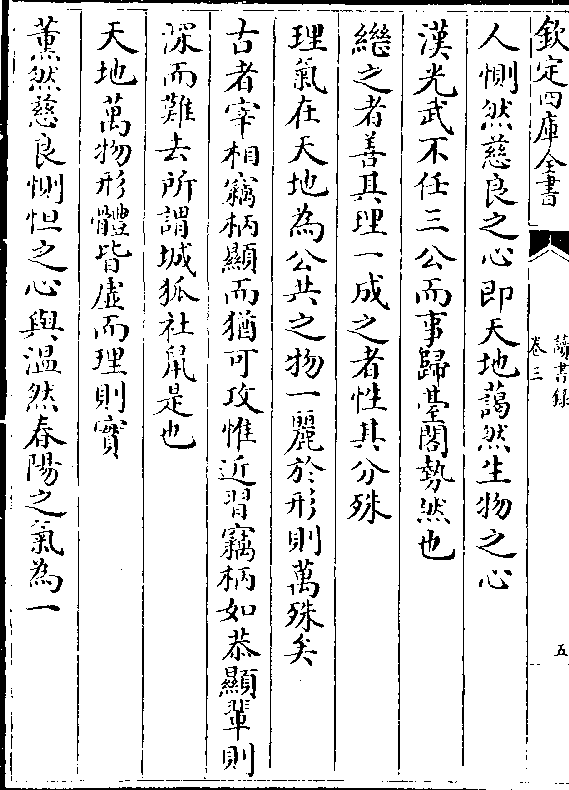 欽定四庫全書
讀書錄
卷三
五
人惻然慈良之心即天地藹然生物之心
漢光武不任三公而事歸臺閣勢然也
繼之者善其理一成之者性其分殊
理氣在天地為公共之物一麗於形則萬殊矣
古者宰相竊柄顯而猶可攻惟近習竊柄如恭顯輩則
深而難去所謂城狐社鼠是也
天地萬物形體皆虛而理則實
薰然慈良惻怛之心與溫然春陽之氣為一